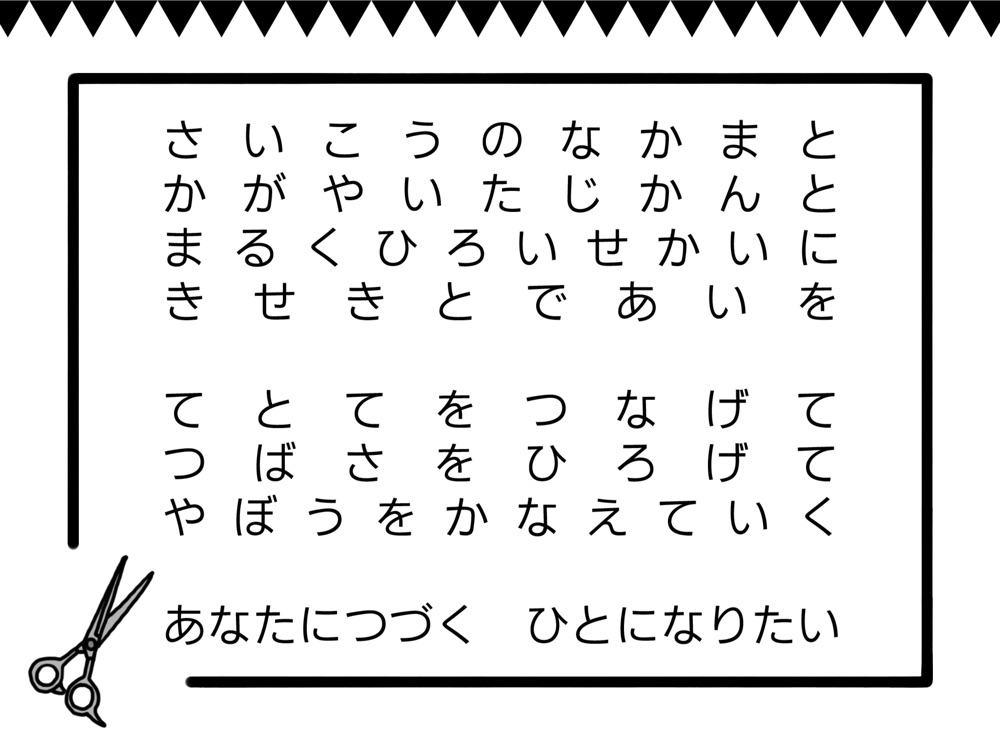 さいこうのなかまと
かがやいたじかんと
まるくひろいせかいに
きせきとであいを
てとてをつなげて
つばさをひろげて
やぼうをかなえていく
あなたにつづく　ひとになりたい